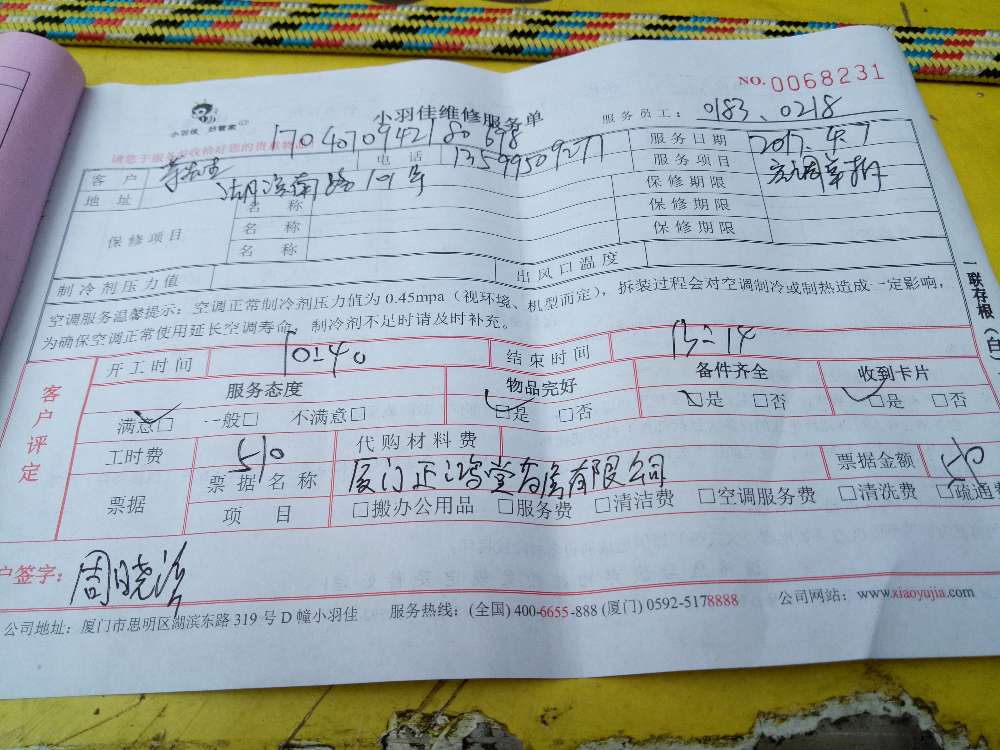 NO.0068231
小羽佳 好管家
小羽佳维修服务单
服务员工：0183、0218
请您于服务前收拾好您的贵重物品
170407094218 0698
客户 电话 13599509277 服务日期 2017.4.7
地址 湖滨南路101号 服务项目 空调
保修项目 名称 保修期限
名称 保修期限
名称 保修期限
制冷剂压力值 出风口温度
空调服务温馨提示：空调正常制冷剂压力值为0.45mpa（视环境、机型而定），拆装过程会对空调制冷或制热造成一定影响，
为确保空调正常使用延长空调寿命，制冷剂不足时请及时补充。
一联存根（白
客户评定
开工时间 10:40 结束时间 13:14
服务态度 物品完好 备件齐全 收到卡片
满意□ 一般□ 不满意□ □是 □否 □是 □否 □是 □否
工时费 510 代购材料费
票据 票据名称 厦门正鸿堂有限公司 票据金额 510
项目 □搬办公用品 □服务费 □清洁费 □空调服务费 □清洗费 □疏通费
户签字：周晓
公司地址：厦门市思明区湖滨东路319号D幢小羽佳 服务热线：(全国) 400-6655-888 (厦门) 0592-5178888 公司网站：www.xiaoyujia.com